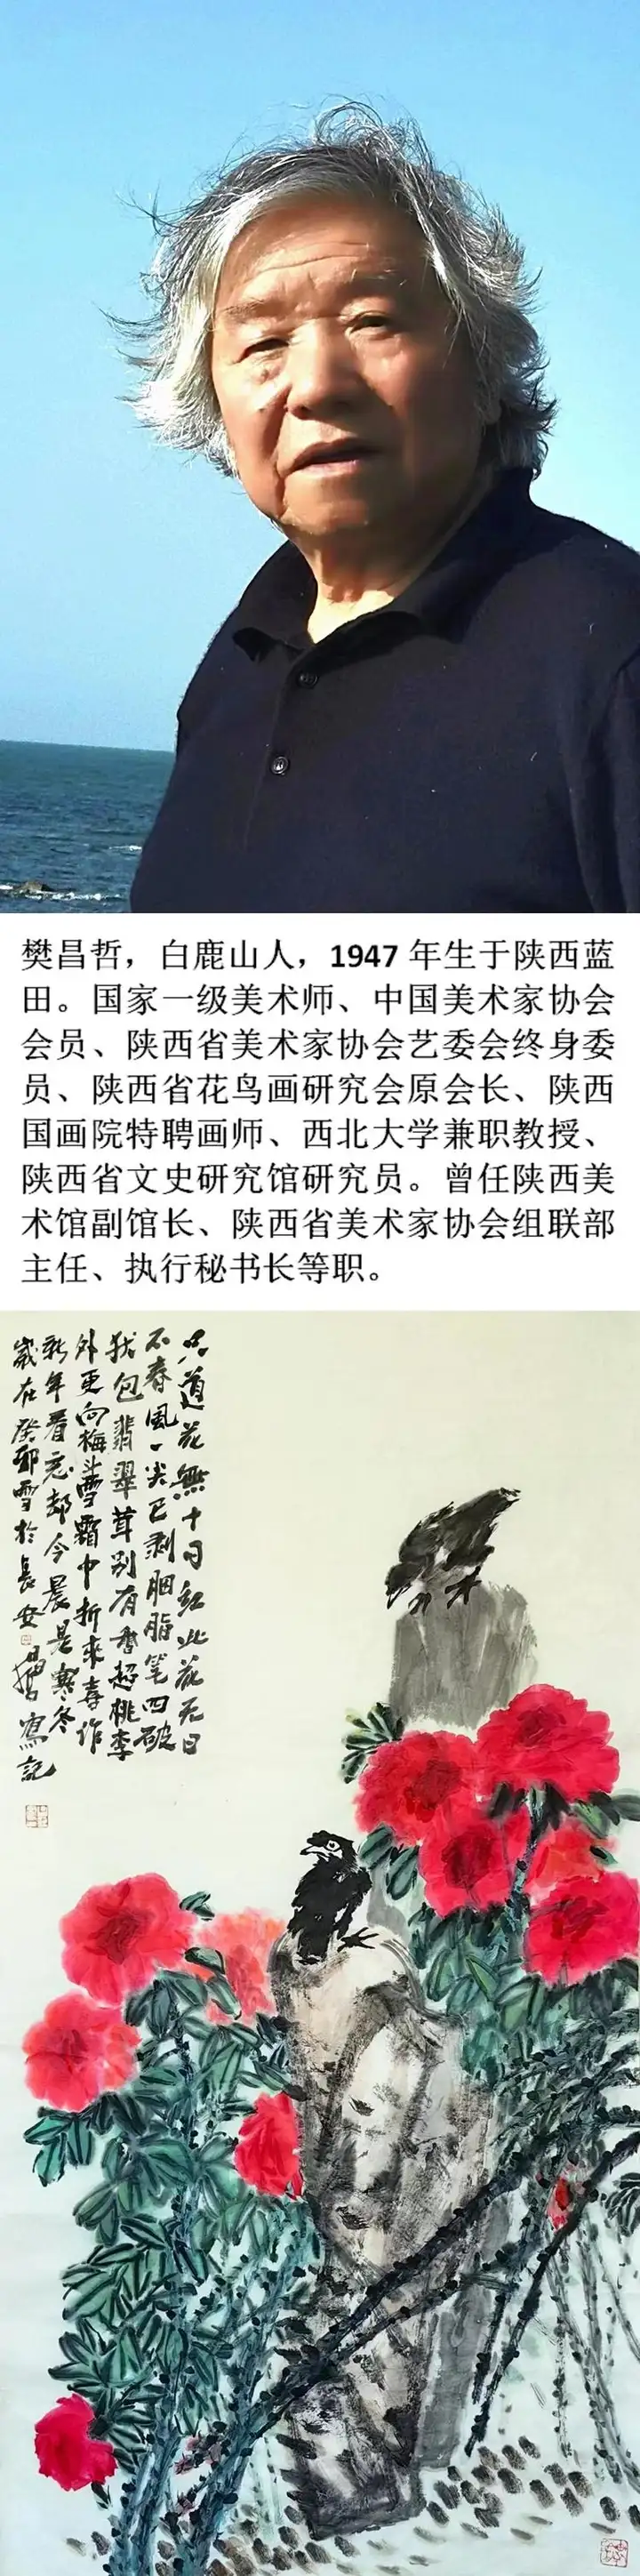 樊昌哲，白鹿山人，1947年生于陕西蓝
田。国家一级美术师、中国美术家协会
会员、陕西省美术家协会艺委会终身委
员、陕西省花鸟画研究会原会长、陕西
国画院特聘画师、西北大学兼职教授、
陕西省文史研究馆研究员。曾任陕西美
术馆副馆长、陕西省美术家协会组联部
主任、执行秘书长等职。
只道花無十日红此花无日
不春風一尖已剥胭脂笔四破
犹包翡翠茸别有香超桃李
外更向梅斗雪霜中折來喜作
新年看忘却今晨是寒冬
歲在癸卯雪於長安寫記